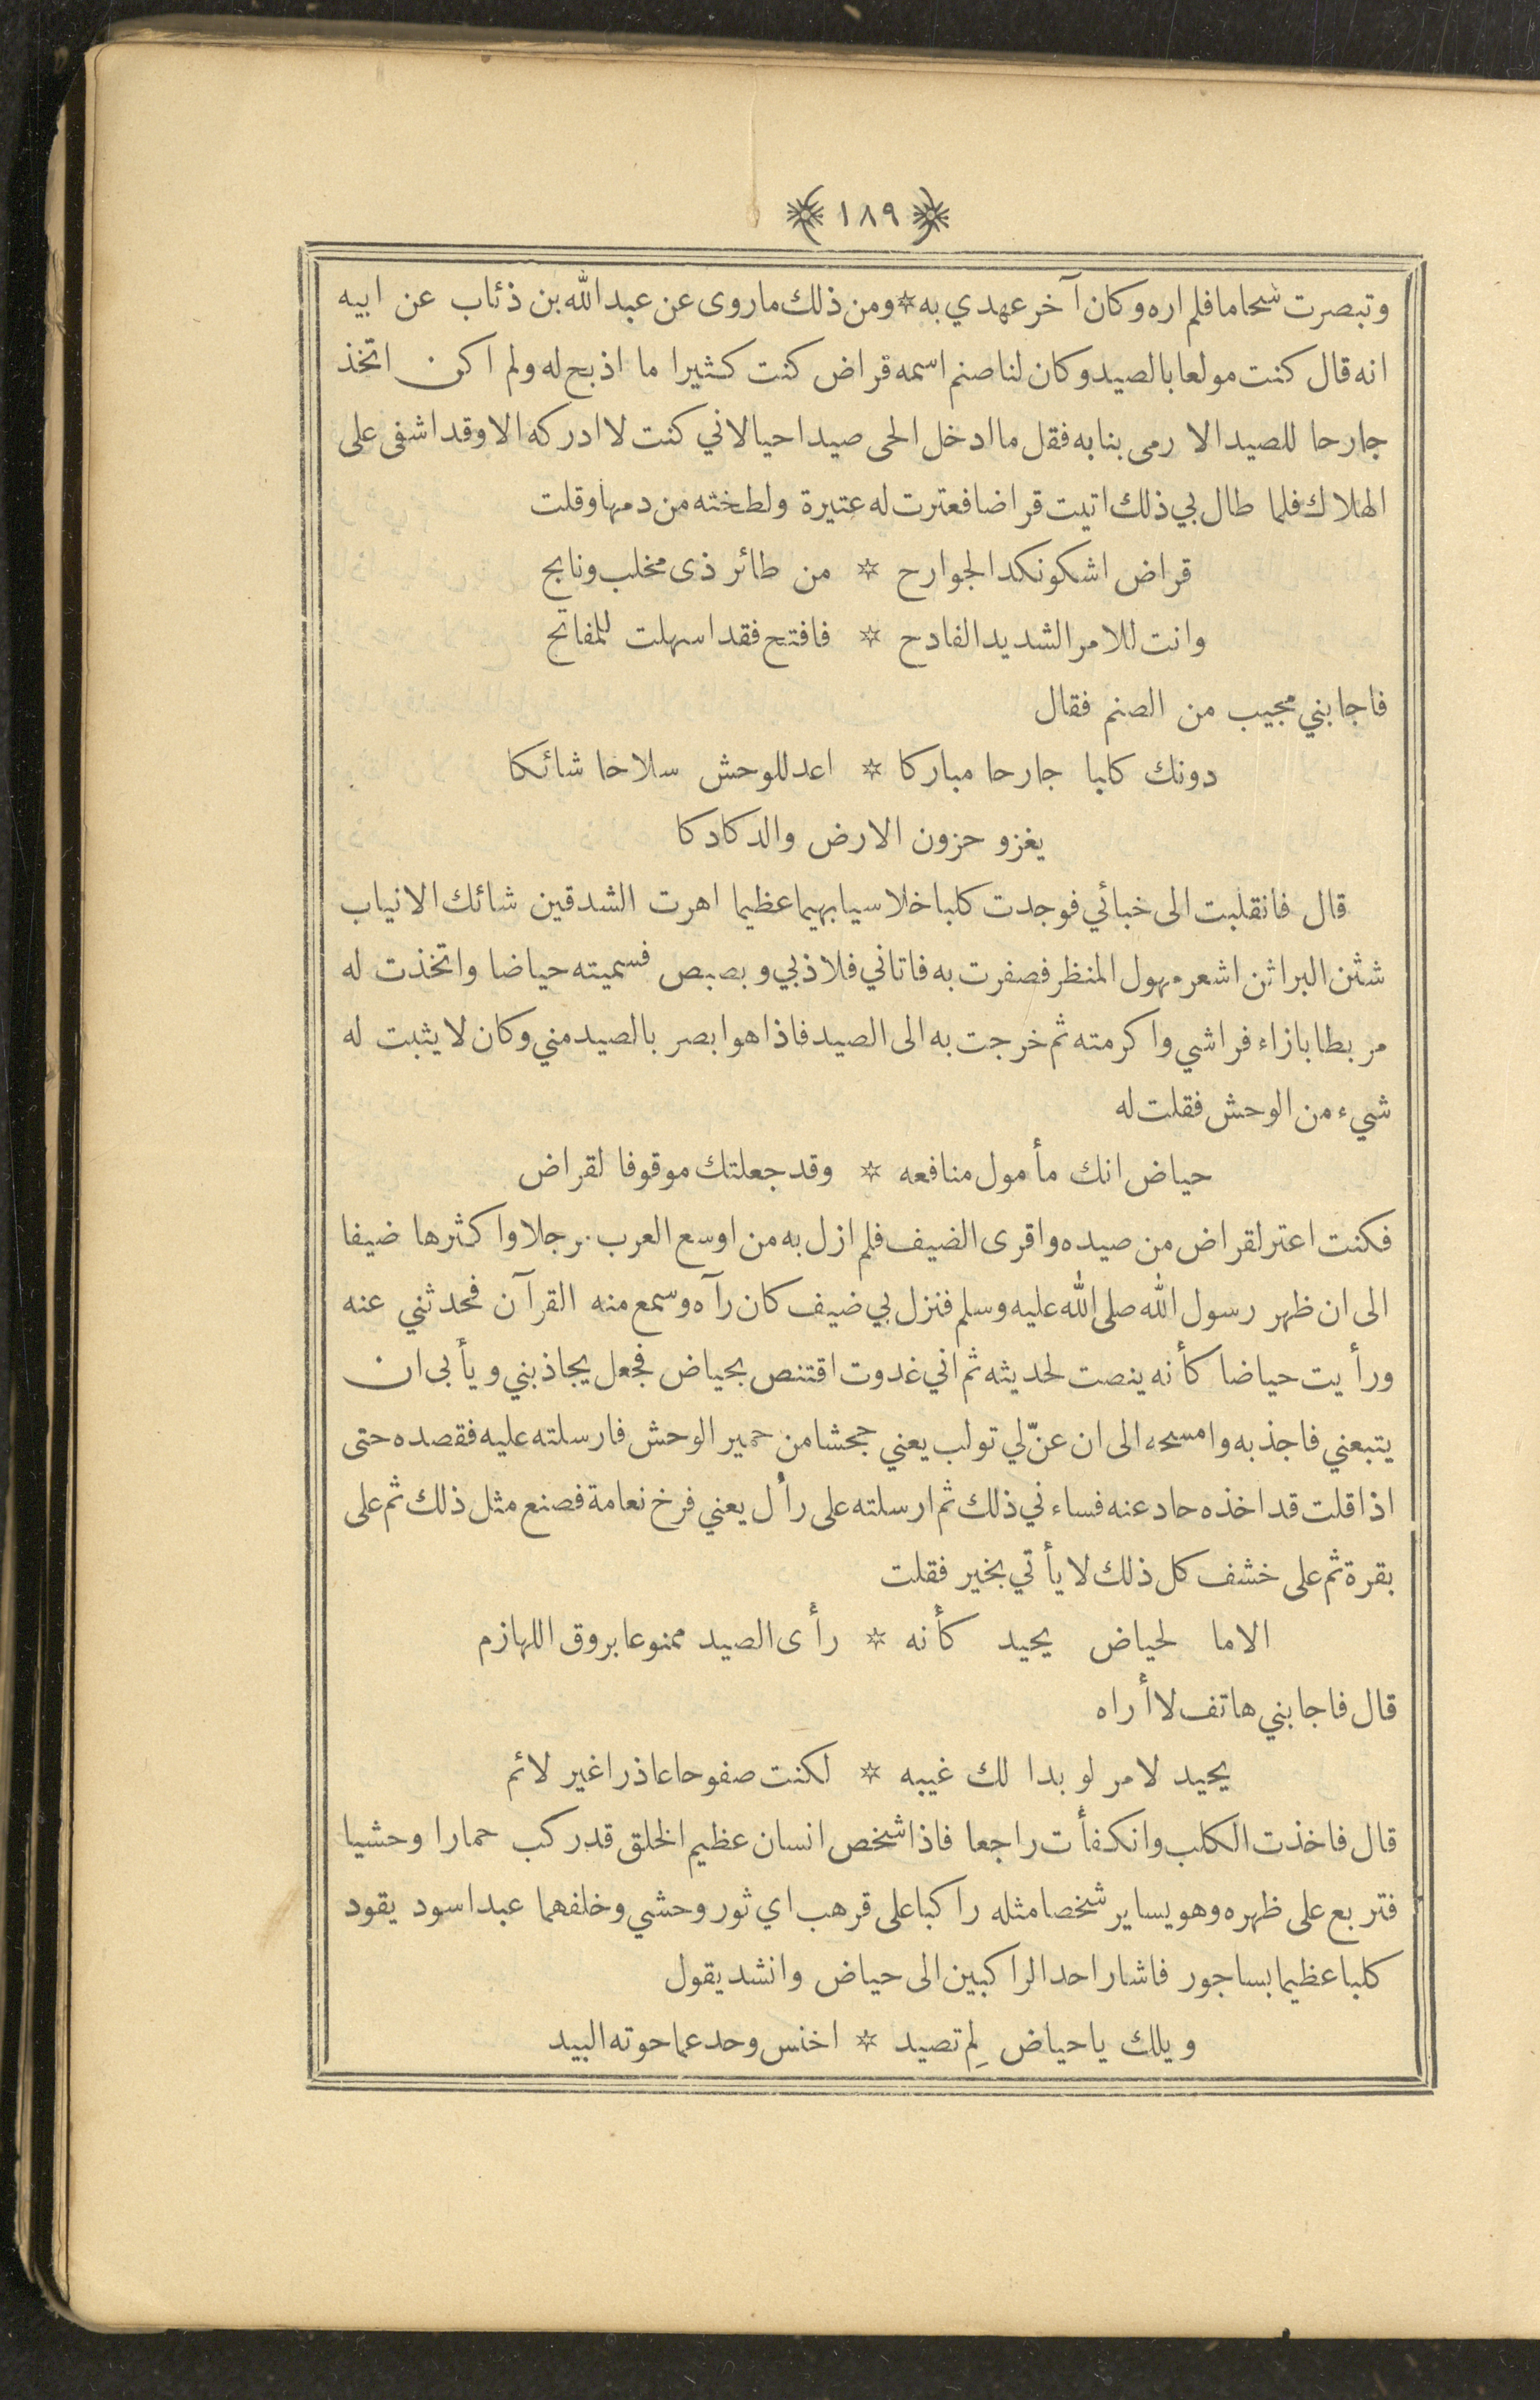 ١٨٩
وتبصرت شحاما فلم اره وكان آخر عهدي به * ومن ذلك ماروى عن عبد الله بن ذئاب عن ابيه
انه قال كنت مولعا بالصيد وكان لنا صنم اسمه قراض كنت كثيرا ما اذبح له ولم اكن اتخذ
جارحا للصيد الا رمى بنابه فقل ما ادخل الحى صيدا حيا لاني كنت لا ادركه الا وقد اشفى على
الهلاك فلما طال بي ذلك اتيت قراضا فعترت له عتيرة ولطخته من دمها وقلت
قراض اشكو نكد الجوارح * من طائر ذى مخلب ونابح
وانت للامر الشديد الفادح * فافتح فقد اسهلت للمفاتح
فاجابني مجيب من الصنم فقال
دونك كلبا جارحا مباركا * اعد للوحش سلاحا شائكا
يغزو حزون الارض والدكادكا
قال فانقلبت الى خبائي فوجدت كلبا خلاسيا بهيما عظيما اهرت الشدقين شائك الانياب
شثن البراثن اشعر مهول المنظر فصفرت به فاتاني فلاذ بي وبصبص فسميته حياضا واتخذت له
مربطا بازاء فراشي واكرمته ثم خرجت به الى الصيد فاذا هو ابصر بالصيد مني وكان لا يثبت له
شيء من الوحش فقلت له
حياض انك مأمول منافعه * وقد جعلتك موقوفا لقراض
فكنت اعتر لقراض من صيده واقرى الضيف فلم ازل به من اوسع العرب رجلا واكثرها ضيفا
الى ان ظهر رسول الله صلى الله عليه وسلم فنزل بي ضيف كان رآه وسمع منه القرآن فحدثني عنه
ورأيت حياضا كأنه ينصت لحديثه ثم اني غدوت اقتنص بحياض فجعل يجاذبني ويأبى ان
يتبعني فاجذبه وامسحه الى ان عنّ لي تولب يعني جحشا من حمير الوحش فارسلته عليه فقصده حتى
اذا قلت قد اخذه حاد عنه فساءني ذلك ثم ارسلته على رأل يعني فرخ نعامة فصنع مثل ذلك ثم على
بقرة ثم على خشف كل ذلك لا يأتي بخير فقلت
الاما لحياض يحيد كأنه * رأى الصيد ممنوعا بروق اللهازم
قال فاجابني هاتف لا أراه
يحيد لامر لو بدا لك غيبه * لكنت صفوحا عاذرا غير لائم
قال فاخذت الكلب وانكفأت راجعا فاذا شخص انسان عظيم الخلق قد ركب حمارا وحشيا
فتربع على ظهره وهو يساير شخصا مثله راكبا على قرهب اي ثور وحشي وخلفهما عبد اسود يقود
كلبا عظيما بساجور فاشار احد الراكبين الى حياض وانشد يقول
ويلك يا حياض لِم تصيد * اخنس وحد عما حوته البيد